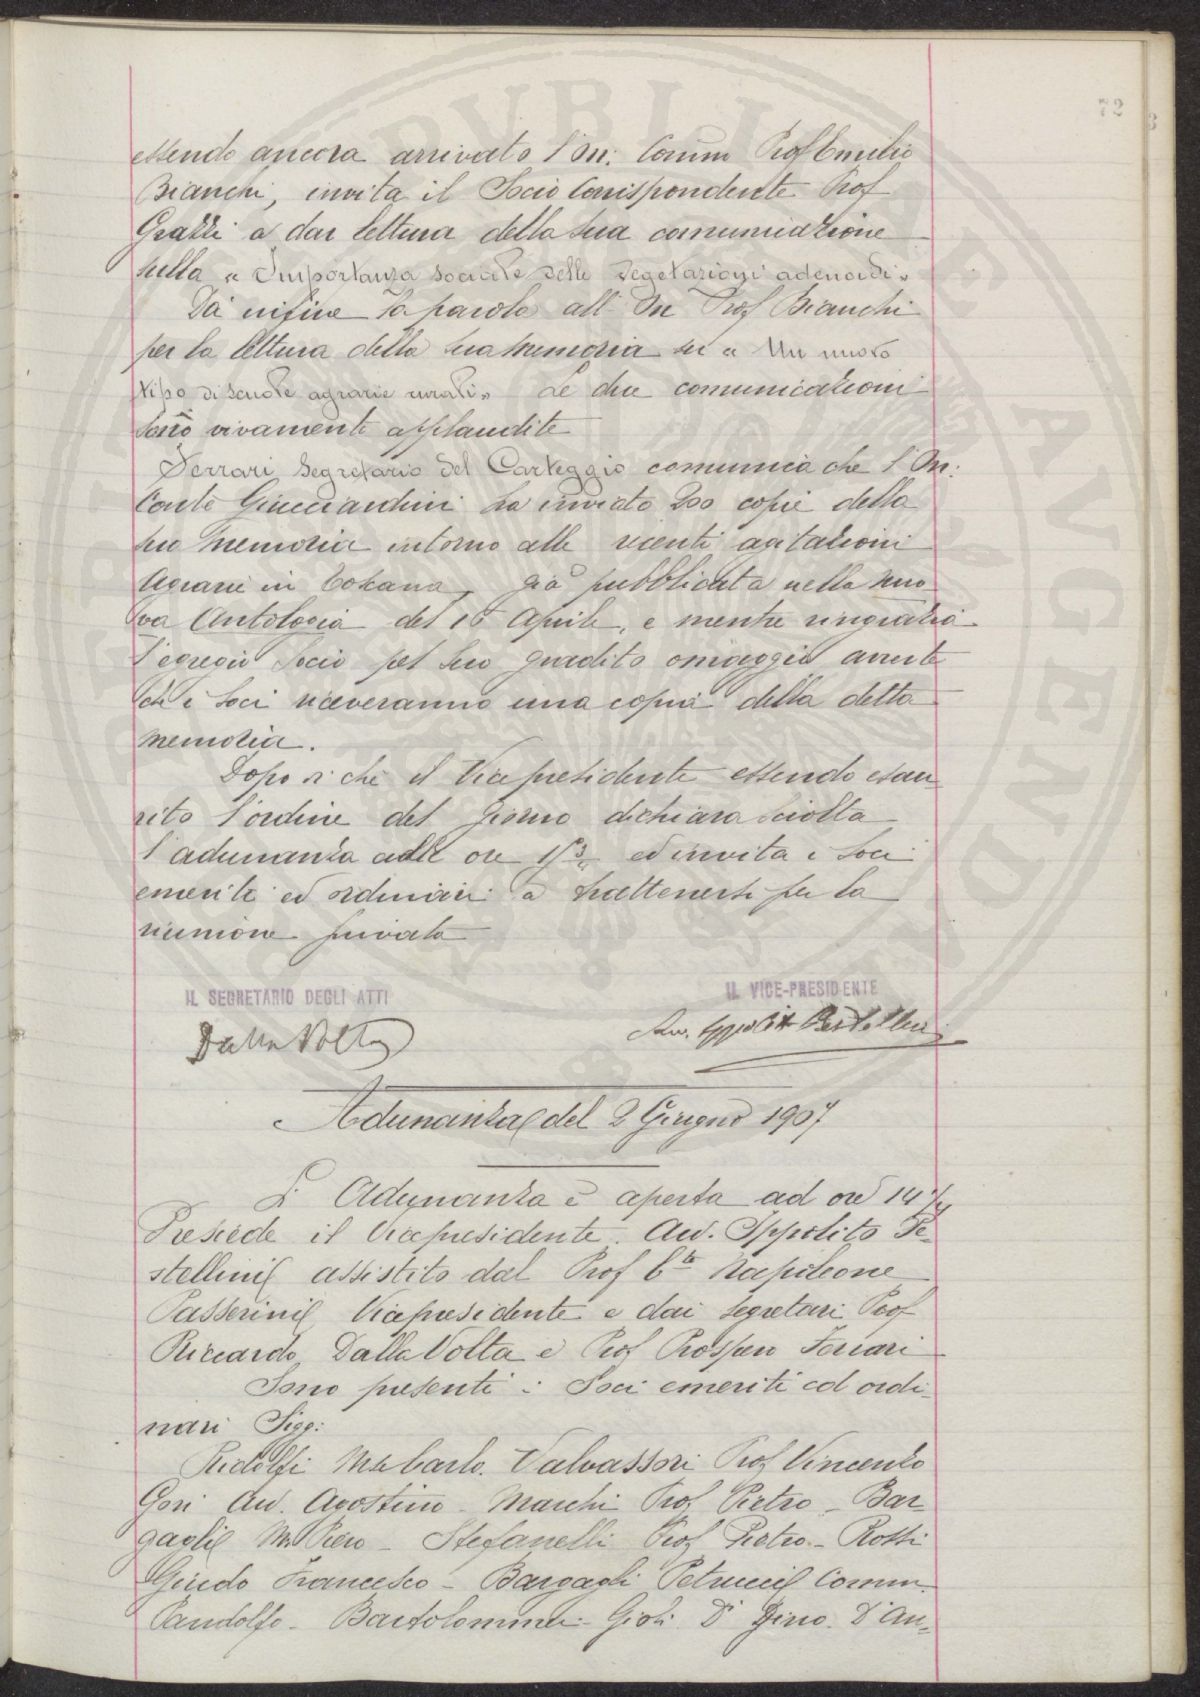 72
essendo ancora arrivato l'On: Comm Prof Emilio
Bianchi, invita il Socio Corrispondente Prof
Grazzi a dar lettura della sua comunicazione
sulla « Importanza sociale delle vegetazioni adenoidi»
Dà infine la parola all' On Prof Bianchi
per la lettura della sua memoria su « Un nuovo
tipo di scuole agrarie rurali» Le due comunicazioni
sono vivamente applaudite
Ferrari Segretario del Carteggio comunica che l'On:
Conte Guicciardini ha inviato 200 copie della
sua memoria intorno alle recenti agitazioni
Agrarie in Toscana, già pubblicata nella Nuo
va Antologia del 16 Aprile, e mentre ringrazia
l'egregio Socio pel suo gradito omaggio avverte
che i Soci riceveranno una copia della detta
memoria.
Dopo di che il Vicepresidente essendo esau
rito l'ordine del giorno dichiara sciolta
l'adunanza alle ore ed invita i Soci
emeriti ed ordinari a trattenersi per la
riunione privata
IL SEGRETARIO DEGLI ATTI
IL VICE-PRESIDENTE
Dalla Volta
Avv. Ippolito Pestellini
Adunanza del 2 Giugno 1907
L' Adunanza è aperta ad ore 14 1/4
Presiede il Vicepresidente Avv. Ippolito Pe-
stellini assistito dal Prof Cte Napoleone
Passerini Vicepresidente e dai segretari Prof
Riccardo Dalla Volta e Prof Prospero Ferrari
Sono presenti i Soci emeriti ed ordi-
nari Sigg:
Ridolfi Mse Carlo. Valvassori Prof Vincenzo
Gori Avv. Agostino - Marchi Prof Pietro - Bar
gagli M. Piero - Stefanelli Prof Pietro - Rossi
Guido Francesco - Bargagli Petrucci Comm.
Pandolfo - Bartolommei-Gioli Dr Gino. D'An-